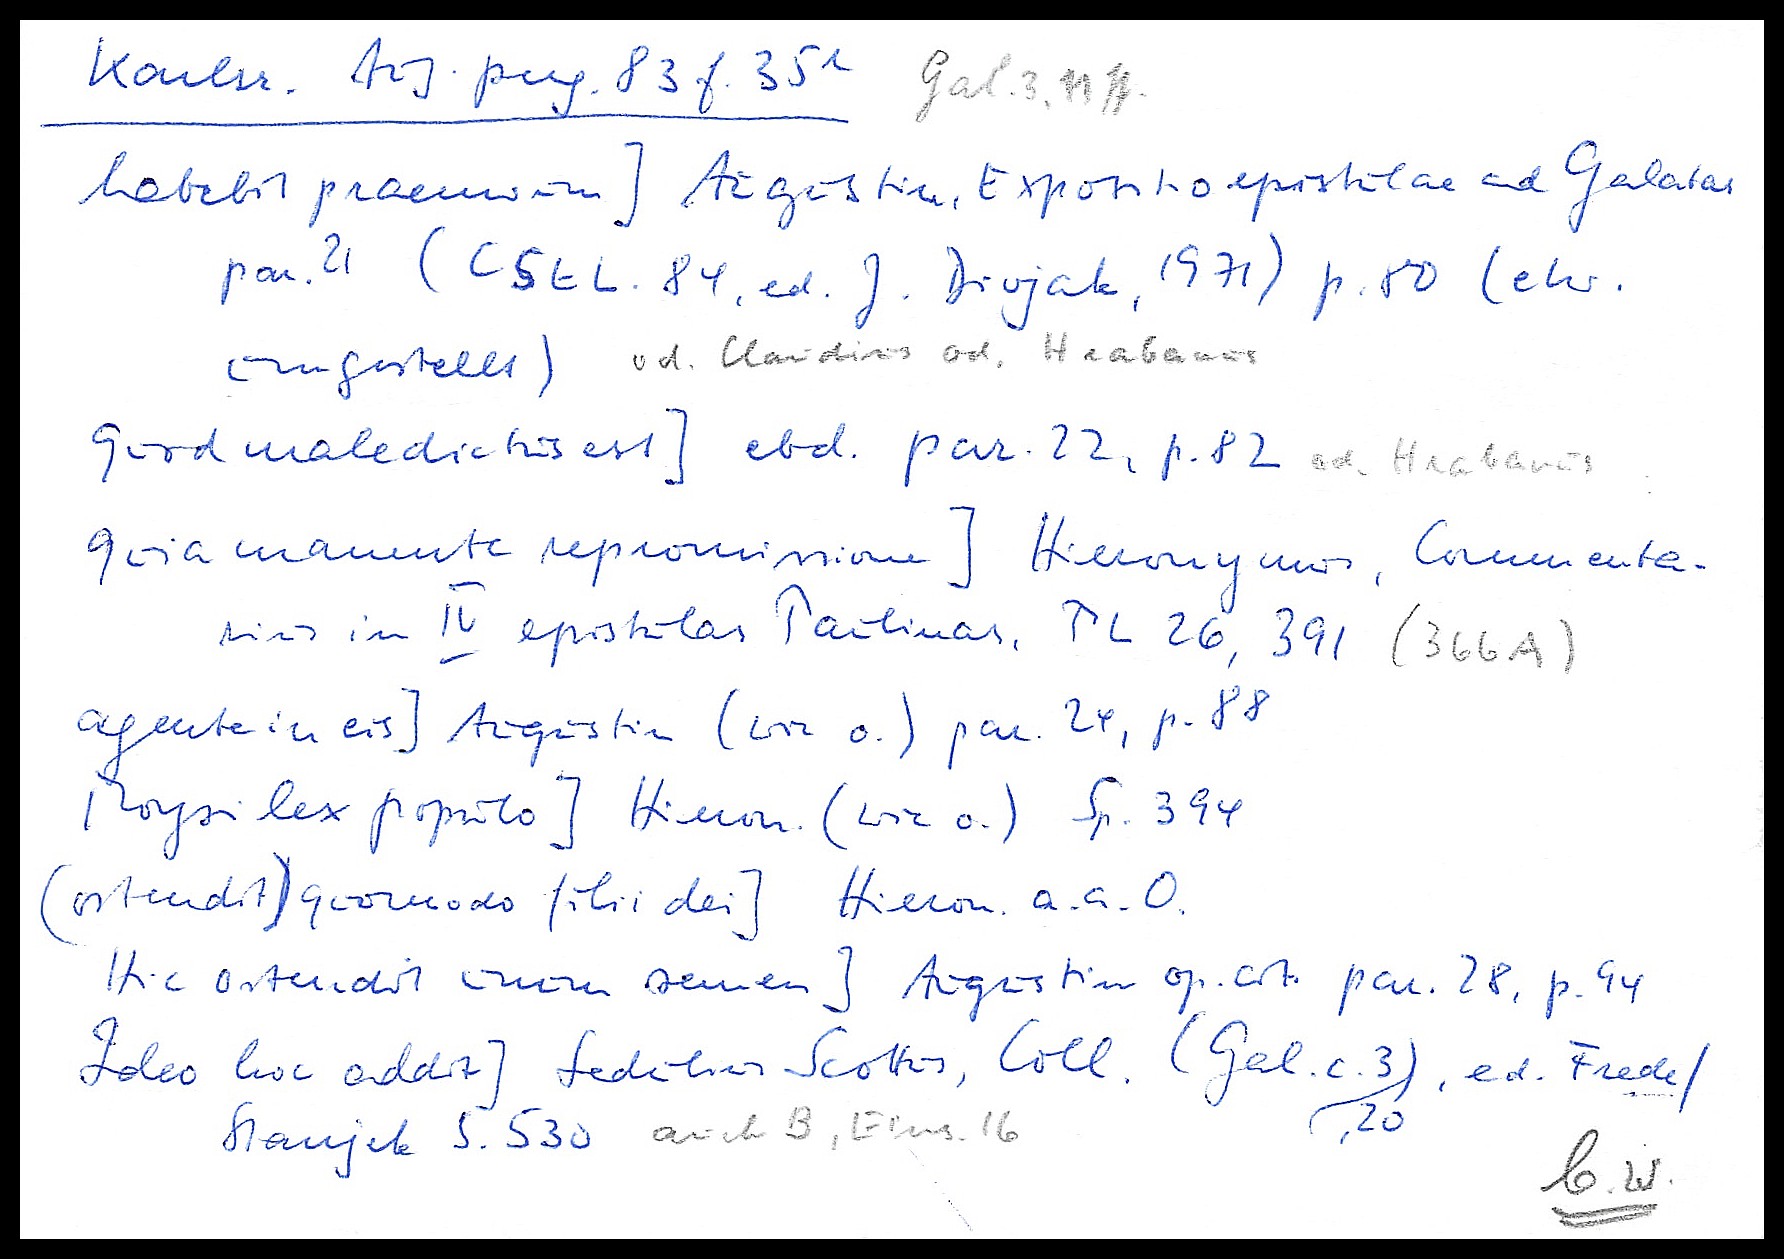 Karlsr. Aug. perg. 83 f. 35r Gal. 3, 11 ff.
habebit praemium] Augustin, Expositio epistulae ad Galatas
par. 21 (CSEL. 84, ed. J. Divjak, 1971) p. 80 (etw.
umgestellt) od. Claudius od. Hrabanus
Quod maledictus est] ebd. par. 22, p. 82 od. Hrabanus
quia manente repromissione] Hieronymus, Commenta-
rius in IV epistulas Paulinas, PL 26, 391 (366A)
agente in eis] Augustin (wie o.) par. 24, p. 88
Moysi lex populo] Hieron. (wie o.) Sp. 394
(ostendit) quomodo filii dei] Hieron. a.a.O.
Hic ostendit unum semen] Augustin op. cit. par. 28, p. 94
Ideo hoc addit] Sedulius Scottus, Coll. (Gal. c. 3), ed. Frede/
,20
Stanjek S. 530 auch B, Eins. 16
b.w.